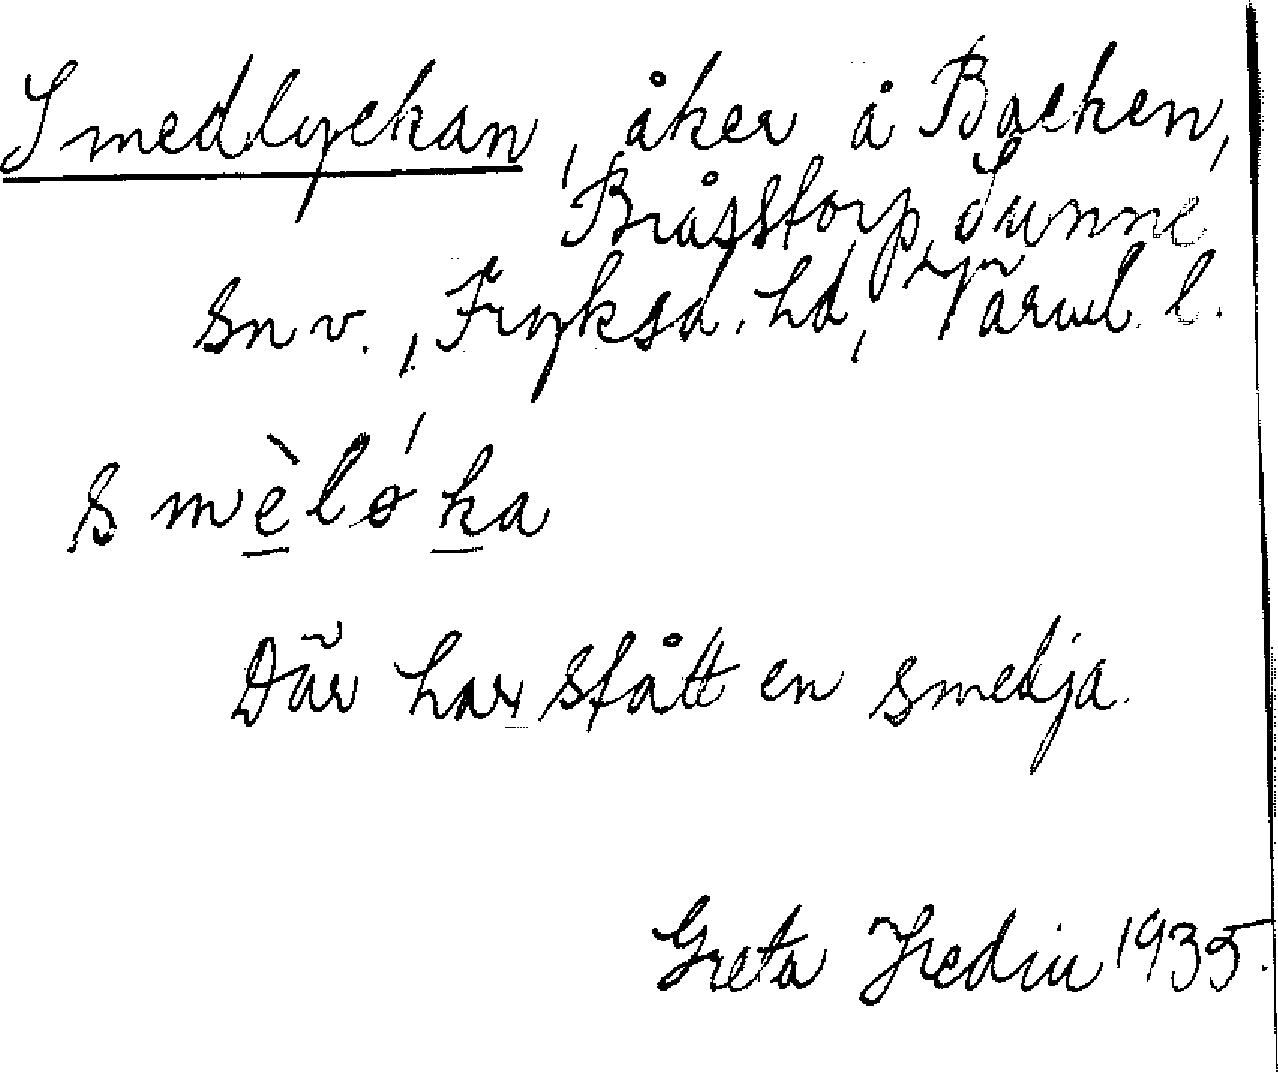 Smedlyckan, åker å Backen,
Bråstorp, Sunne
sn v., Fryksd. hd, Värml. l.
smèlǿka
Där har stått en smedja.
Greta Hedin 1935.